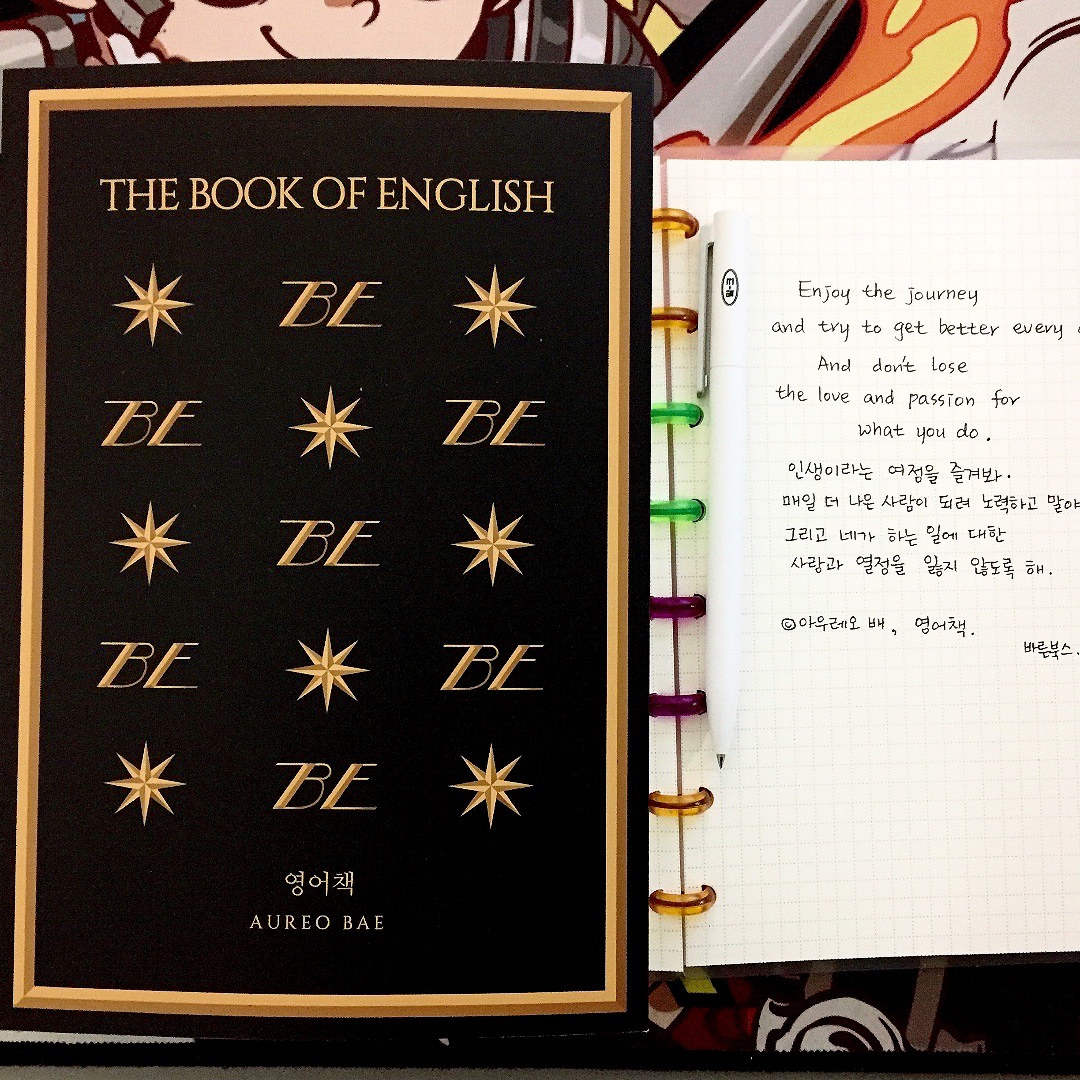 THE BOOK OF ENGLISH
BE
BE BE
BE
BE BE
BE
영어책
AUREO BAE
Enjoy the journey
and try to get better every
And don't lose
the love and passion for
what you do.
인생이라는 여정을 즐겨봐.
매일 더 나은 사람이 되려 노력하고 말야
그리고 네가 하는 일에 대한
사랑과 열정을 잃지 않도록 해.
©아우레오 배, 영어책.
바른북스.